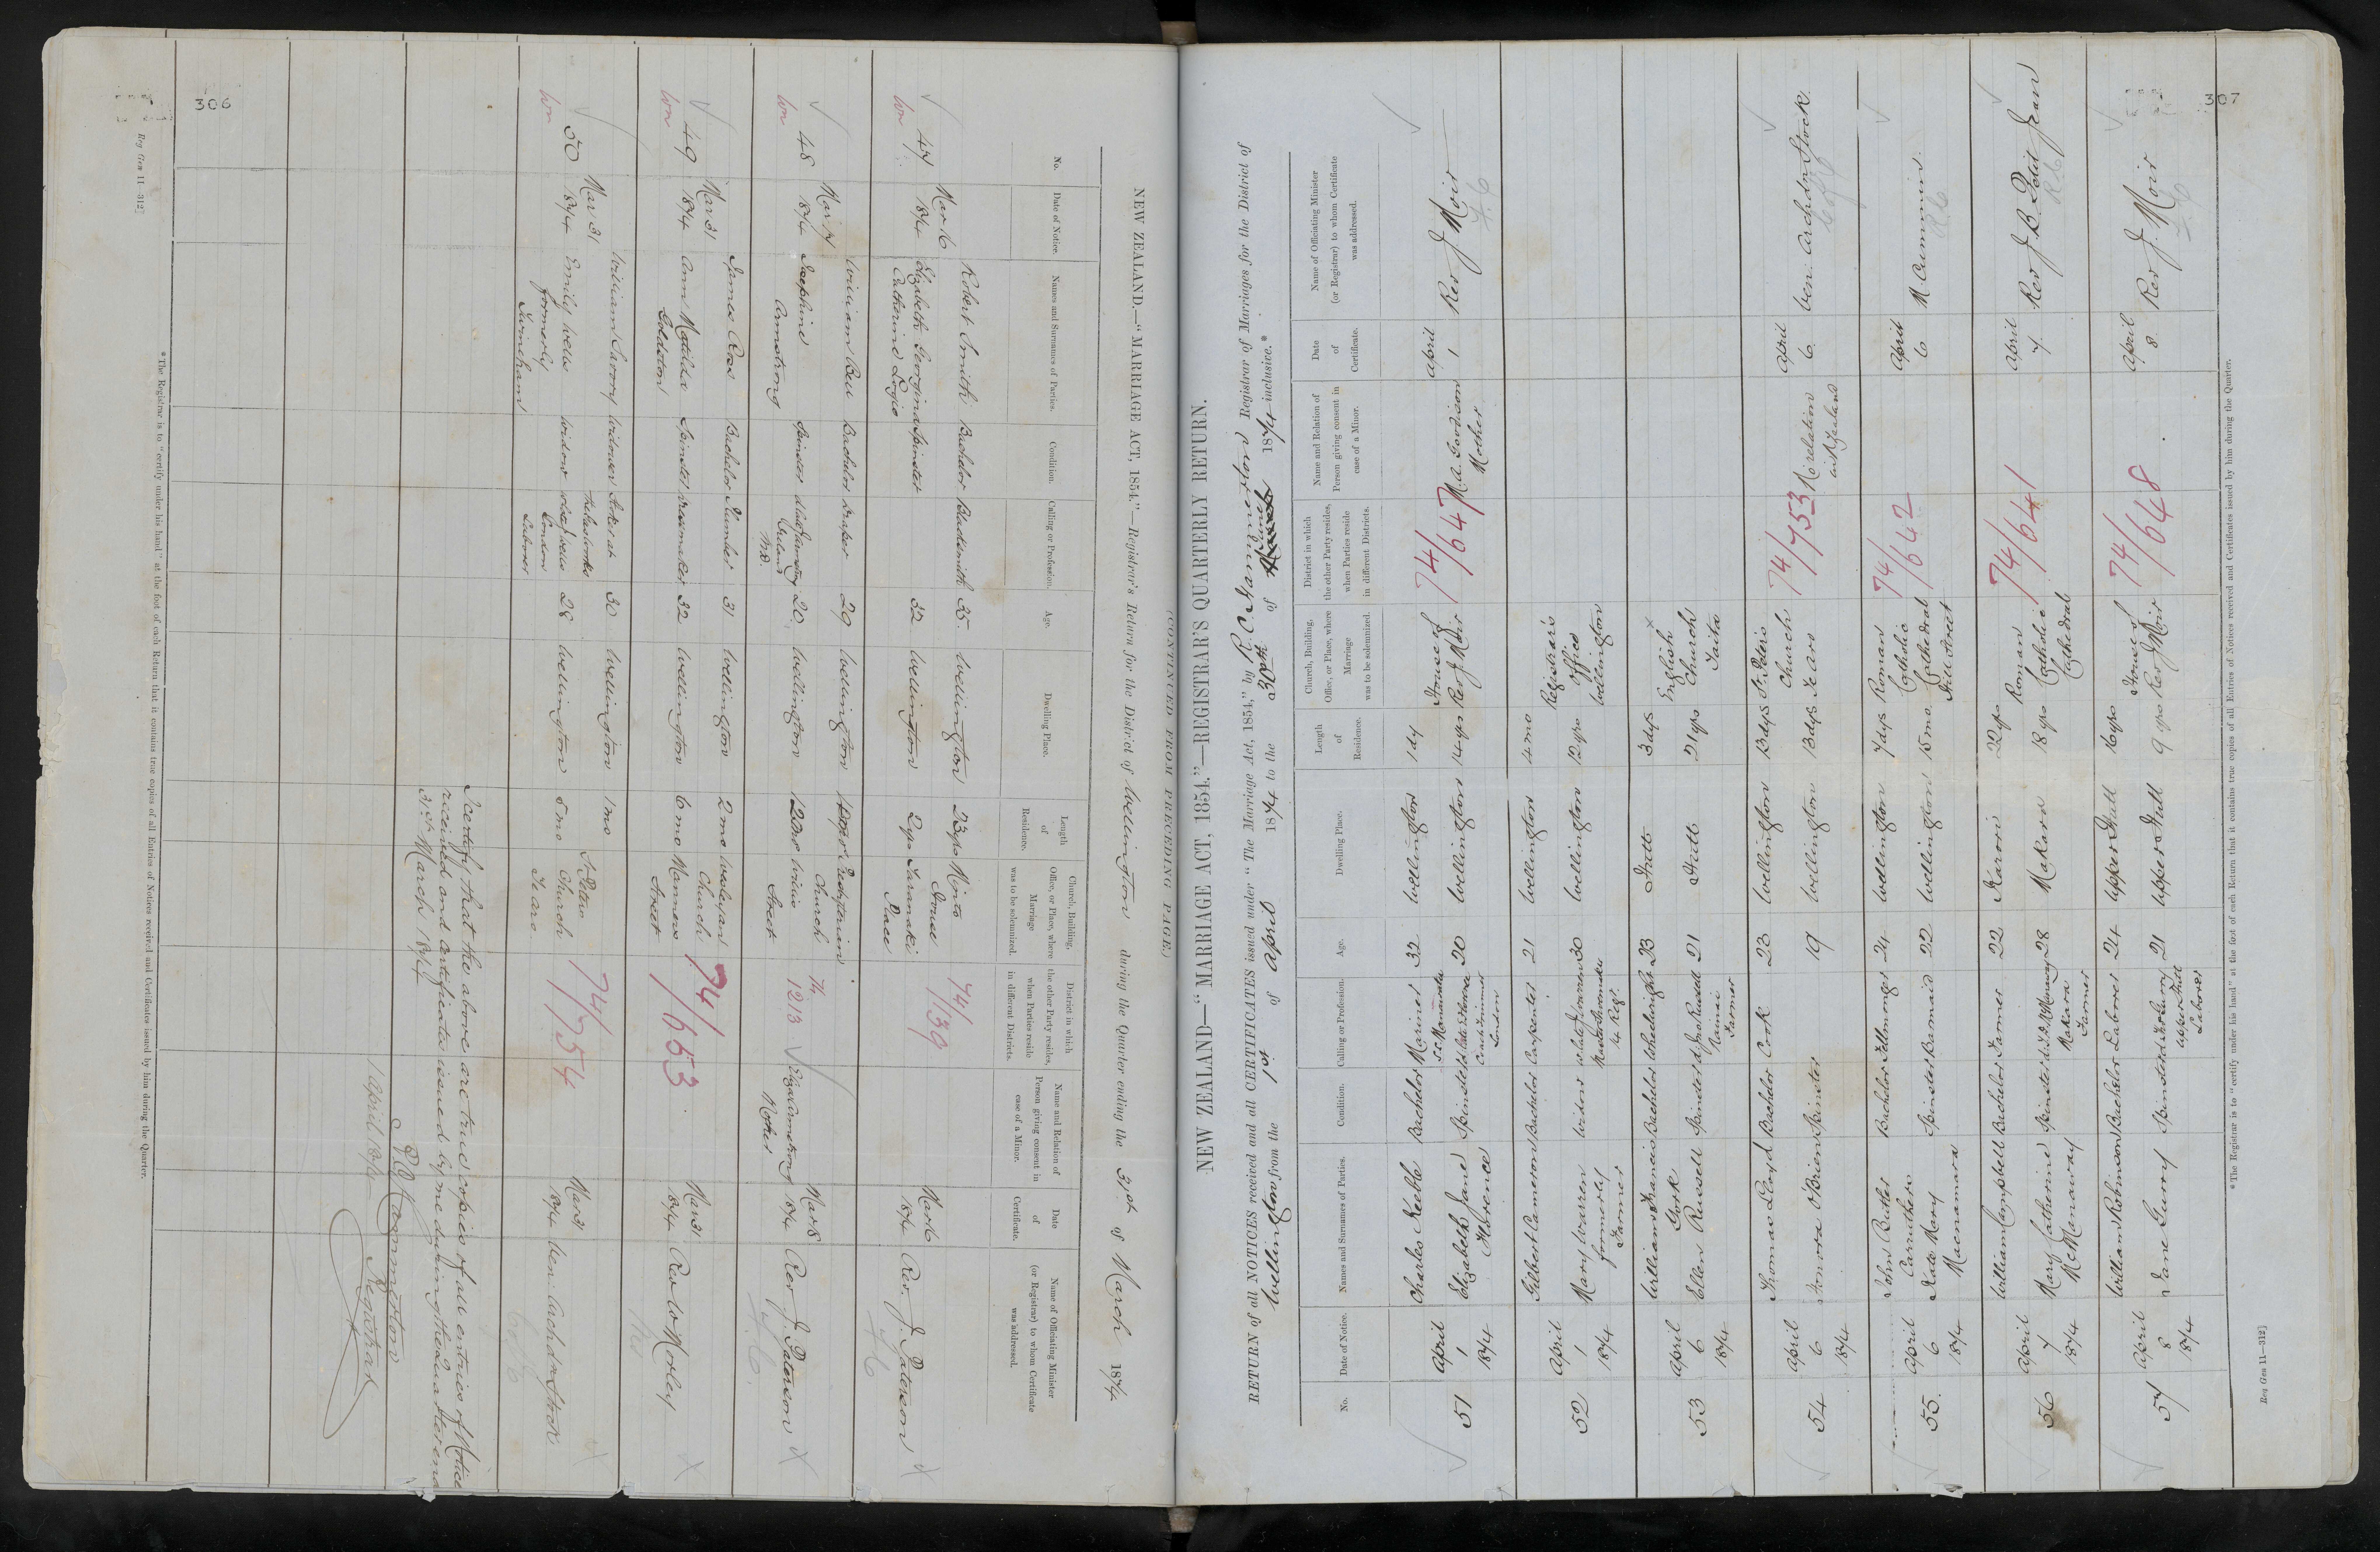 306
(CONTINUED FROM PRECEDING PAGE.)
NEW ZEALAND.—"MARRIAGE ACT, 1854."—Registrar's Return for the District of Wellington during the Quarter ending the 31st of March 1874
No.
Date of Notice.
Names and Surnames of Parties.
Condition.
Calling or Profession.
Age.
Dwelling Place.
Length of Residence.
Church, Building, Office, or Place, where Marriage was to be solemnized.
District in which the other Party resides, when Parties reside in different Districts.
Name and Relation of Person giving consent in case of a Minor.
Date of Certificate.
Name of Officiating Minister (or Registrar) to whom Certificate was addressed.
47 Mar 16 1874
Robert Smith Bachelor Blacksmith 35 Wellington 23 yrs
Elizabeth Georgina Catherine Logie Spinster 32 Wellington 2 yrs
House Taranaki Place
74/139
Mar 16 1874 Rev. J. Paterson
48 Mar 17 1874
William Bell Bachelor Draper 29 Wellington
Josephine Armstrong Spinster 20 Wellington
Presbyterian Church Willis Street
74 1213
Eliza Armstrong Mother
Mar 18 1874 Rev. J. Paterson
49 Mar 31 1874
James Rae Bachelor Plumber 31 Wellington 2 mo
Ann Matilda Goldston Spinster Dressmaker 32 Wellington 6 mo
Wesleyan Church Manners Street
74/653
Mar 31 1874 Rev. W. Morley
50 Mar 31 1874
William Savory Widower 30 Wellington 1 mo
Emily Wells formerly Twineham Widow 28 Wellington 5 mo
St Peters Church Te Aro
74/754
Mar 31 1874 Ven. Archdn Stock
I certify that the above are true copies of all entries of Notices
received and certificates issued by me during the Quarter end
31st March 1874
R. C. Hammerton
Registrar
1 April 1874
* The Registrar is to "certify under his hand" at the foot of each Return that it contains true copies of all Entries of Notices received and Certificates issued by him during the Quarter.
Reg Gen 11—312]
307
NEW ZEALAND—"MARRIAGE ACT, 1854."—REGISTRAR'S QUARTERLY RETURN.
RETURN of all NOTICES received and all CERTIFICATES issued under "The Marriage Act, 1854," by R. C. Hammerton Registrar of Marriages for the District of
Wellington from the 1st of April 1874 to the 30th of June 1874 inclusive.*
No.
Date of Notice.
Names and Surnames of Parties.
Condition.
Calling or Profession.
Age.
Dwelling Place.
Length of Residence.
Church, Building, Office, or Place, where Marriage was to be solemnized.
District in which the other Party resides, when Parties reside in different Districts.
Name and Relation of Person giving consent in case of a Minor.
Date of Certificate.
Name of Officiating Minister (or Registrar) to whom Certificate was addressed.
51 April 1 1874
Charles Keeble Bachelor Mariner 32 Wellington 1 dy
Elizabeth Jane Florence Spinster Coach Trimmer London 20 Wellington 14 yrs
House of Rev J. Moir
74/647
M. A. Davidson Mother
April 1 Rev J. Moir
52 April 1 1874
Gilbert Cameron Bachelor Carpenter 21 Wellington 4 mo
Mary Warren formerly Farmer Widow 30 Wellington 12 yrs
Registrar's Office Wellington
53 April 6 1874
William Francis Gork Bachelor Wheelwright 23 Hutt 3 dys
Ellen Russell Spinster Farmer 21 Hutt 21 yrs
English Church Taita
54 April 6 1874
Thomas Lloyd Bachelor Cook 23 Wellington 13 dys
Honora O'Brien Spinster 19 Wellington 13 dys
St Peters Church Te Aro
74/753
No relation in N. Zealand
April 6 Ven. Archdn Stock
55 April 6 1874
John Butler Carruthers Bachelor Fellmonger 24 Wellington 7 dys
Kate Mary Macnamara Spinster Barmaid 22 Wellington 15 mo.
Roman Catholic Cathedral Hill Street
74/642
April 6 M. Cummins
56 April 7 1874
William Campbell Bachelor Farmer 22 Karori 22 yrs
Mary Catherine McManaway Spinster Makara Farmer 28 Makara 18 yrs
Roman Catholic Cathedral
74/641
April 7 Rev J. B. Petit Jean
57 April 8 1874
William Robinson Bachelor Laborer 24 Upper Hutt 16 yrs
Jane Gurry Spinster Upper Hutt Laborer 21 Upper Hutt 9 yrs
House of Rev J. Moir
74/648
April 8 Rev J. Moir
* The Registrar is to "certify under his hand" at the foot of each Return that it contains true copies of all Entries of Notices received and Certificates issued by him during the Quarter.
Reg Gen 11—312]